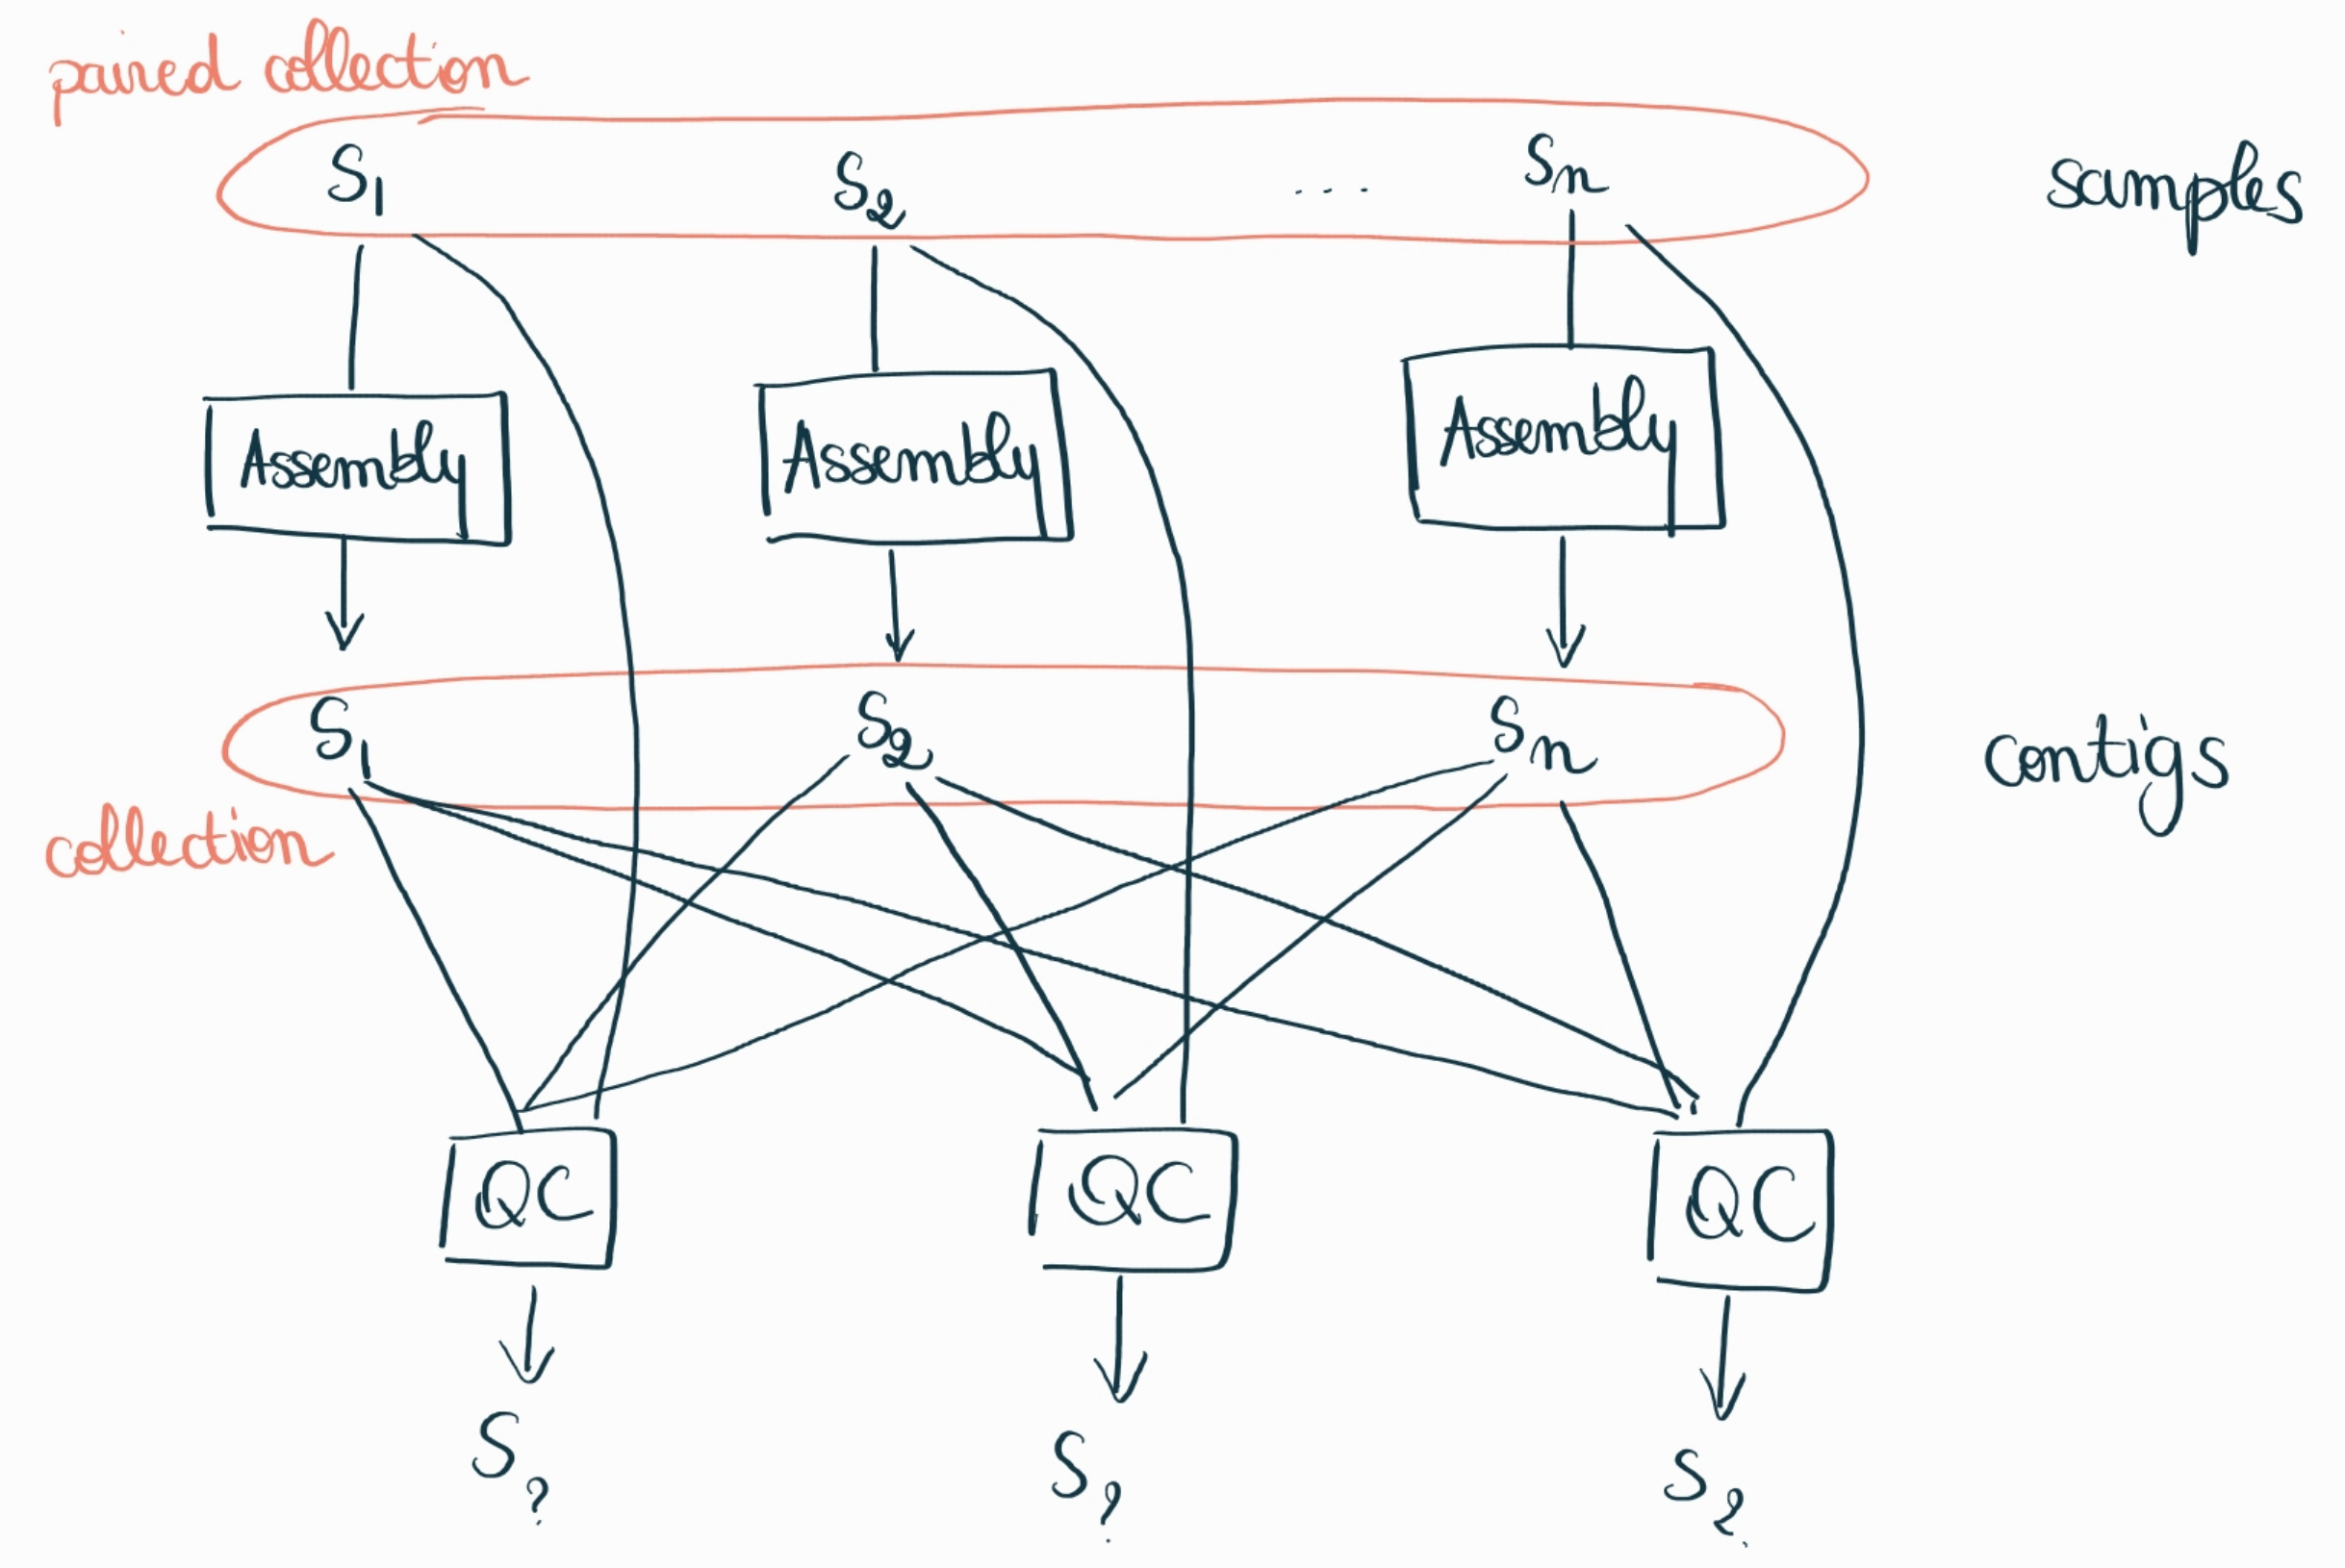 paired collection
S1 S2 ... Sn samples
Assembly Assembly Assembly
S1 S2 Sn contigs
collection
QC QC QC
S? S? S?